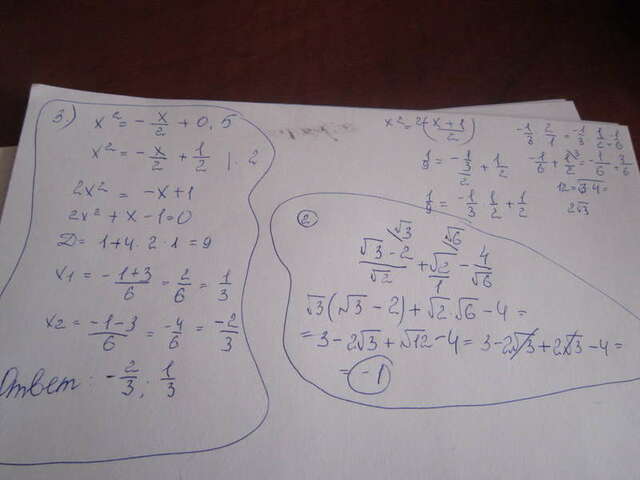 3) x² = -x/2 + 0,5
x² = -x/2 + 1/2 | · 2
2x² = -x+1
2x² + x - 1=0
D = 1+4·2·1 = 9
x1 = (-1+3)/6 = 2/6 = 1/3
x2 = (-1-3)/6 = -4/6 = -2/3
Ответ: -2/3; 1/3
1/9 = -(1/3)/2 + 1/2
1/9 = -1/3 · 1/2 + 1/2
-1/3 · 2/1 = -1/3 · 1/2 = 1/6
-1/6 + 1/2 = -1/6 + 3/6
12 = 3·4 =
2√3
2
(√3-2)/√2 \√3 + √2/1 \√6 - 4/√6
√3(√3-2)+√2·√6-4 =
= 3-2√3+√12-4 = 3-2√3+2√3-4 =
= -1